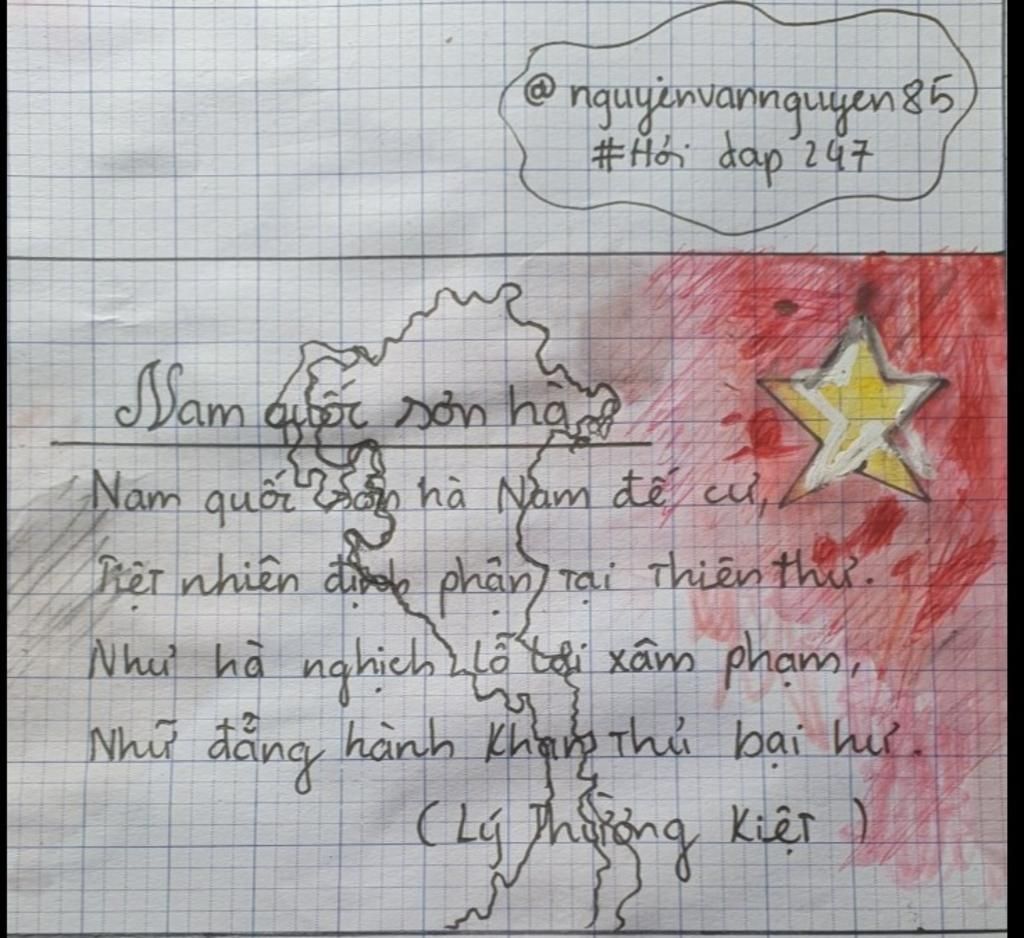 @nguyenvannguyen85
#Hỏi dap 247
Nam quốc sơn hà
Nam quốc sơn hà Nam đế cư,
Tiệt nhiên định phận tại Thiên thư.
Như hà nghịch lỗ tới xâm phạm,
Nhữ đẳng hành Khan Thủ bại hư.
(Lý Thường Kiệt)